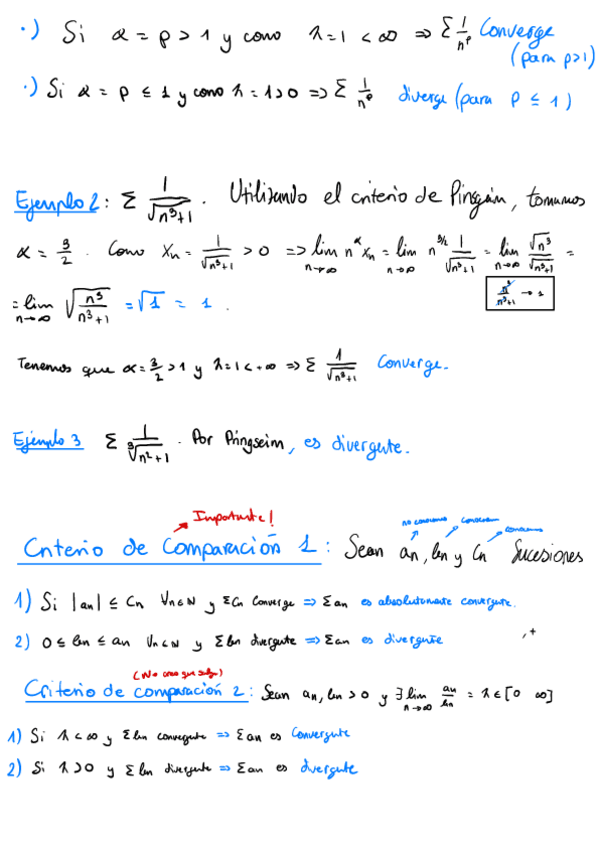 ·) Si α = p > 1 y como λ = 1 < ∞ ⇒ Σ 1/n^p Converge
(para p>1)
·) Si α = p ≤ 1 y como λ = 1 > 0 => Σ 1/n^p diverge (para p ≤ 1)
Ejemplo 2: Σ 1/√(n³+1) . Utilizando el criterio de Pinsgéin, tomamos
α = 3/2 . Como Xn = 1/√(n³+1) > 0 => lim n→∞ n^α xn = lim n→∞ n^(3/2) 1/√(n³+1) = lim n→∞ √n³/√(n³+1) =
n³/n³+1 → 1
= lim n→∞ √(n³/n³+1) = √1 = 1 .
Tenemos que α = 3/2 > 1 y λ = 1 < +∞ => Σ 1/√(n³+1) Converge.
Ejemplo 3 Σ 1/∛(n²+1) . Por Pringseim, es divergente.
Importante!
Criterio de Comparación 1 : Sean an, bn y Cn Sucesiones
1) Si |an| ≤ Cn ∀n∈N y ΣCn Converge ⇒ Σan es absolutamente convergente.
2) 0 ≤ bn ≤ an ∀n∈N y Σbn divergente ⇒ Σan es divergente
Criterio de comparación 2 : Sean an, bn > 0 y ∃ lim n→∞ an/bn = λ ∈ [0 ∞]
1) Si λ < ∞ y Σbn convergente ⇒ Σan es Convergente
2) Si λ > 0 y Σbn divergente ⇒ Σan es divergente